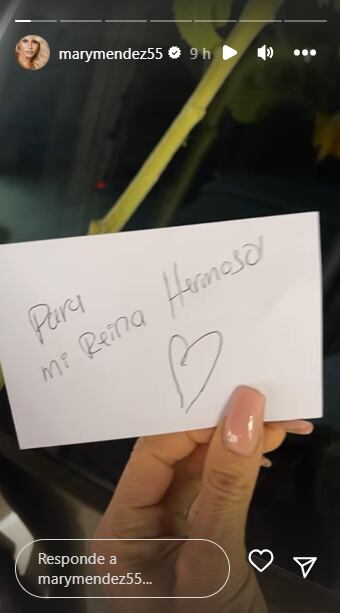 marymendez55 9 h
Para
mi Reina Hermosa
Responde a
marymendez55...